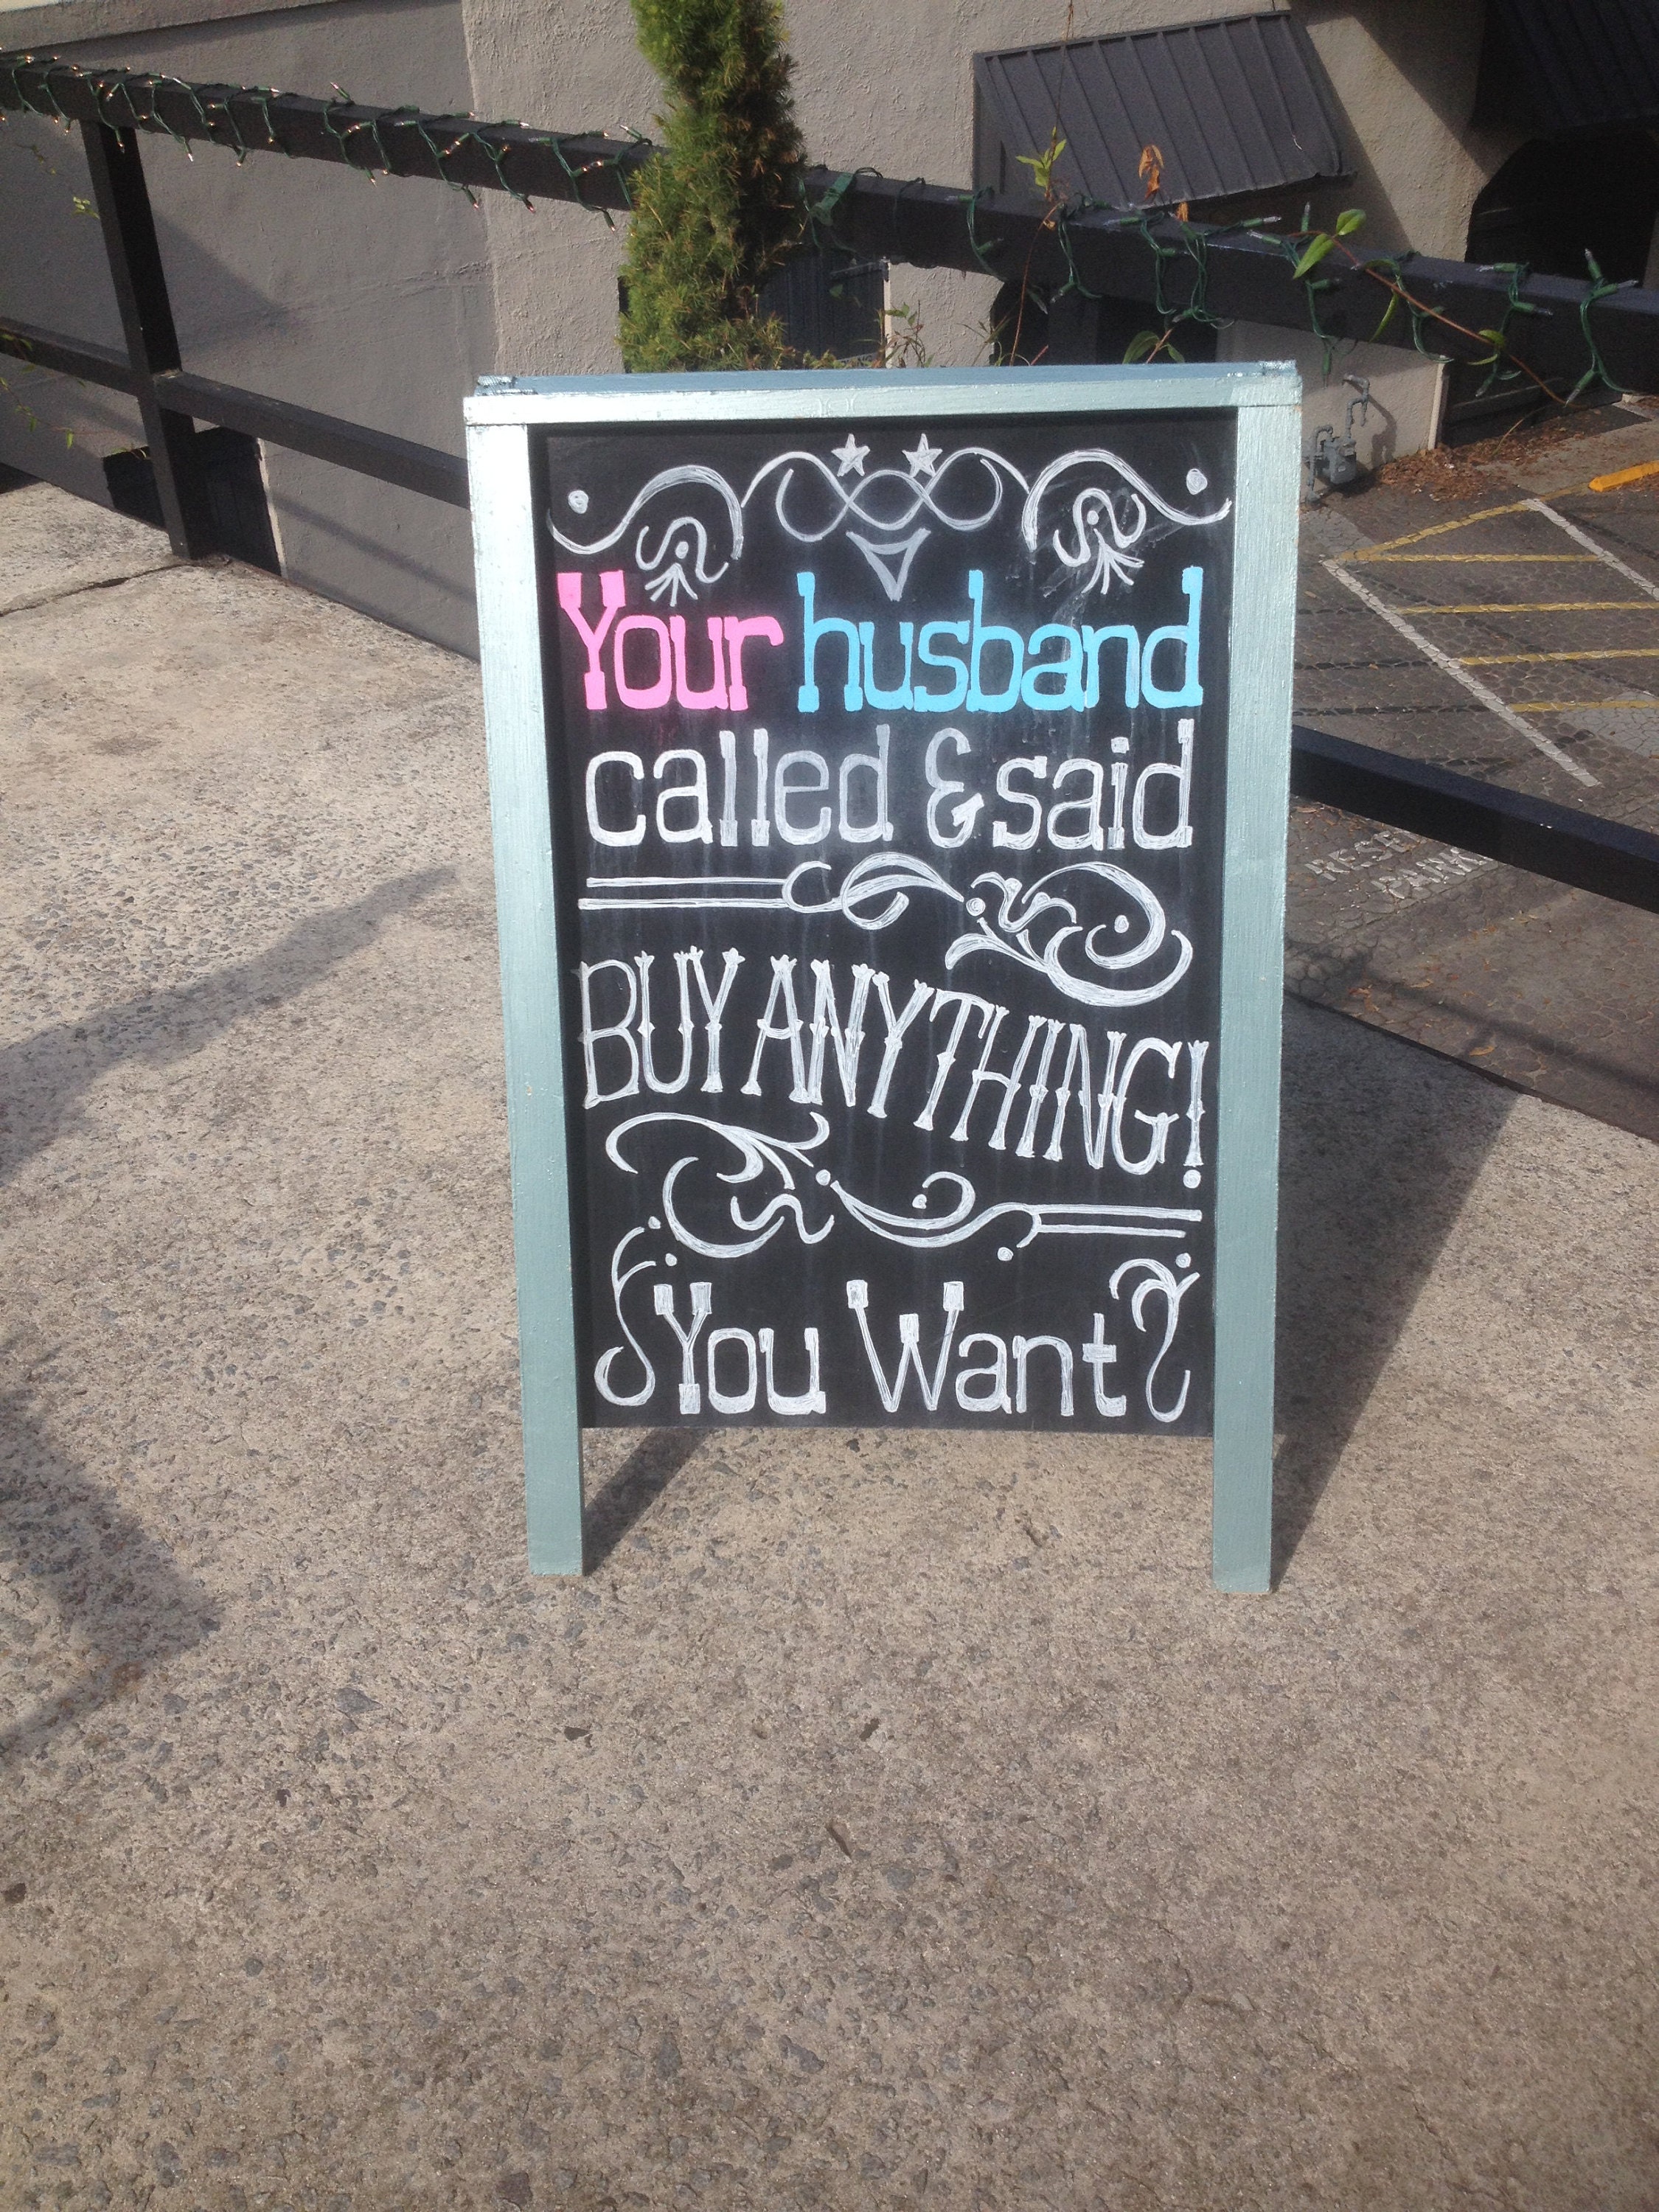 Your husband
called & said
BUY ANYTHING!
You Want